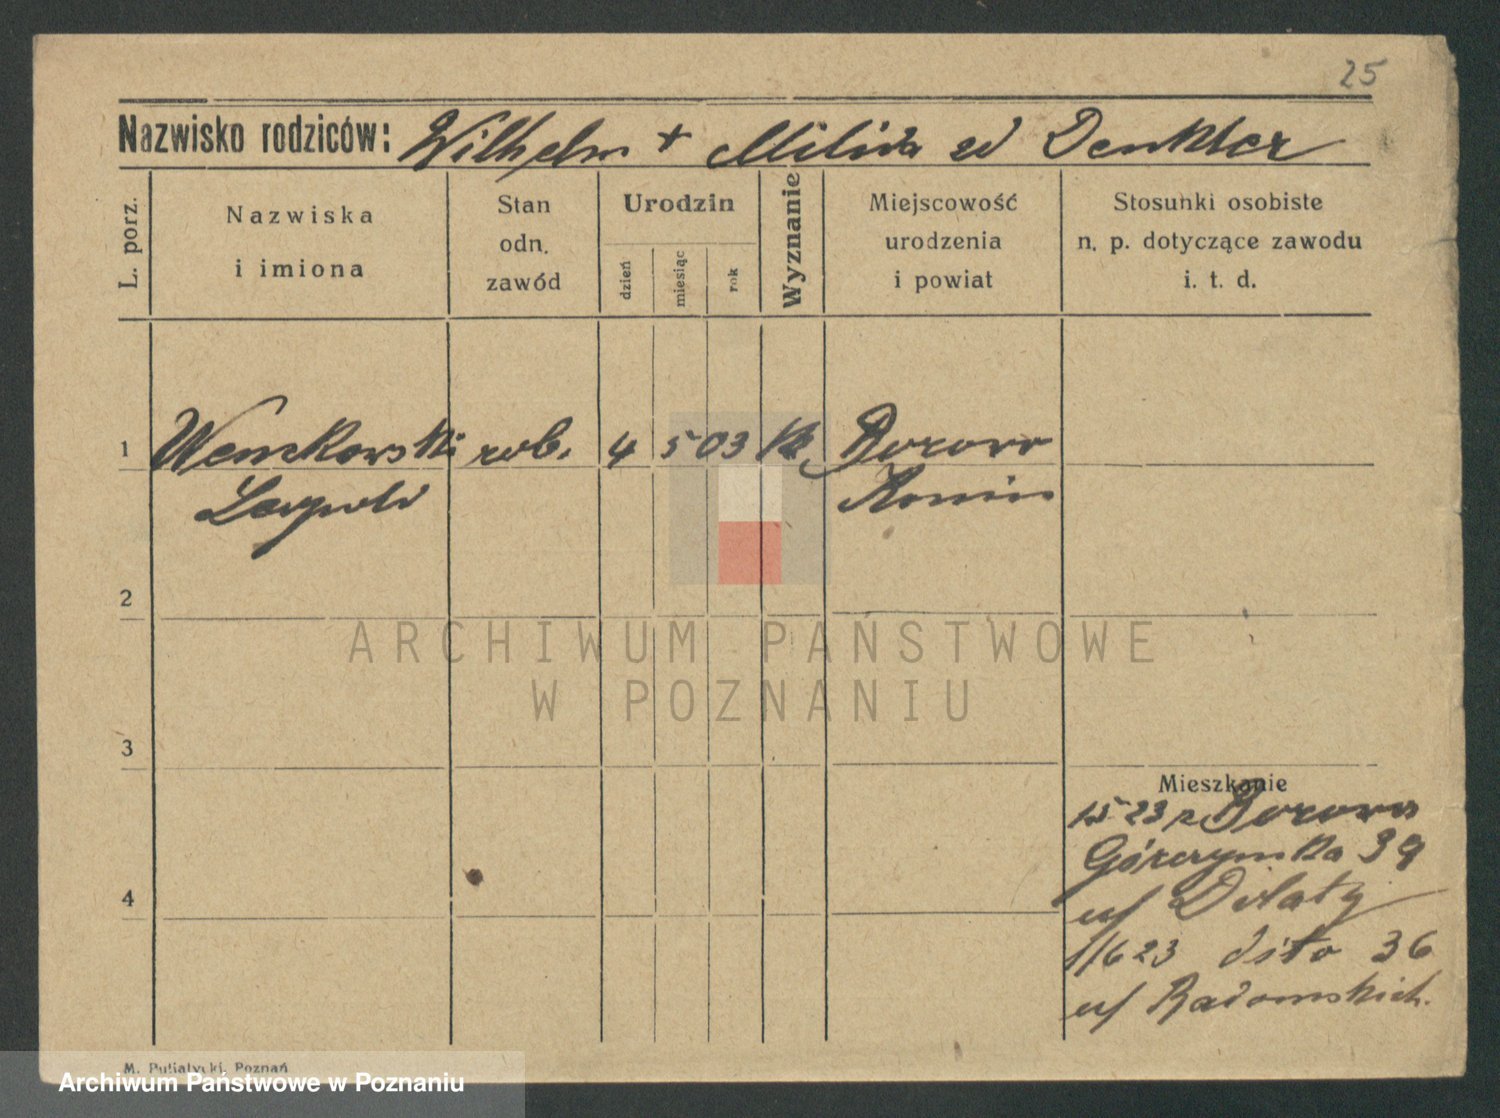 25
Nazwisko rodziców: Wilhelm + Milida zd Denkler
L. porz.
Nazwiska
i imiona
Stan
odn.
zawód
Urodzin
dzień
miesiąc
rok
Wyznanie
Miejscowość
urodzenia
i powiat
Stosunki osobiste
n. p. dotyczące zawodu
i. t. d.
1 Wenzkowski rob. 4 5 03 Borowo
Leopold Konin
2
3
4
Mieszkanie
23 z Borowo
Górczyńska 39
u/
1/6 23 dito 36
u/ Radomskich.
M. Putiatycki, Poznań
ARCHIWUM PAŃSTWOWE
W POZNANIU
Archiwum Państwowe w Poznaniu